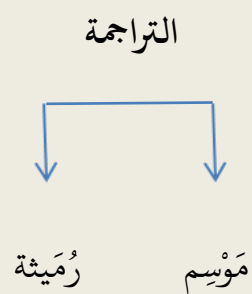 التراجمة
مَوْسِم رُمَيثة